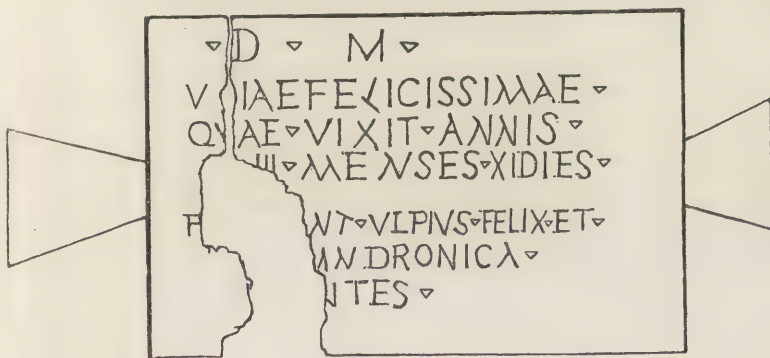 ▿ D ▿ M ▿
V IAEFELICISSIMAE ▿
QVAE ▿ VIXIT ▿ ANNIS ▿
III ▿ MENSES ▿ XIDIES ▿
NT ▿ VLPIVS ▿ FELIX ▿ ET ▿
ANDRONICA ▿
NTES ▿